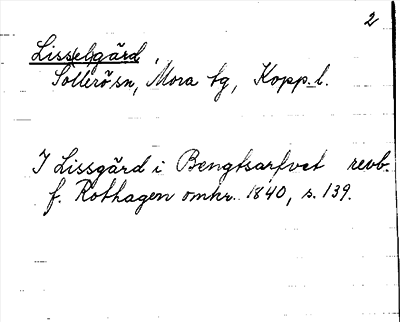 2
Lisselgård,
Sollerö sn, Mora tg, Kopp. l.
I Lissgård i Bengtsarfvet revb.
f. Rothagen omkr. 1840, s. 139.